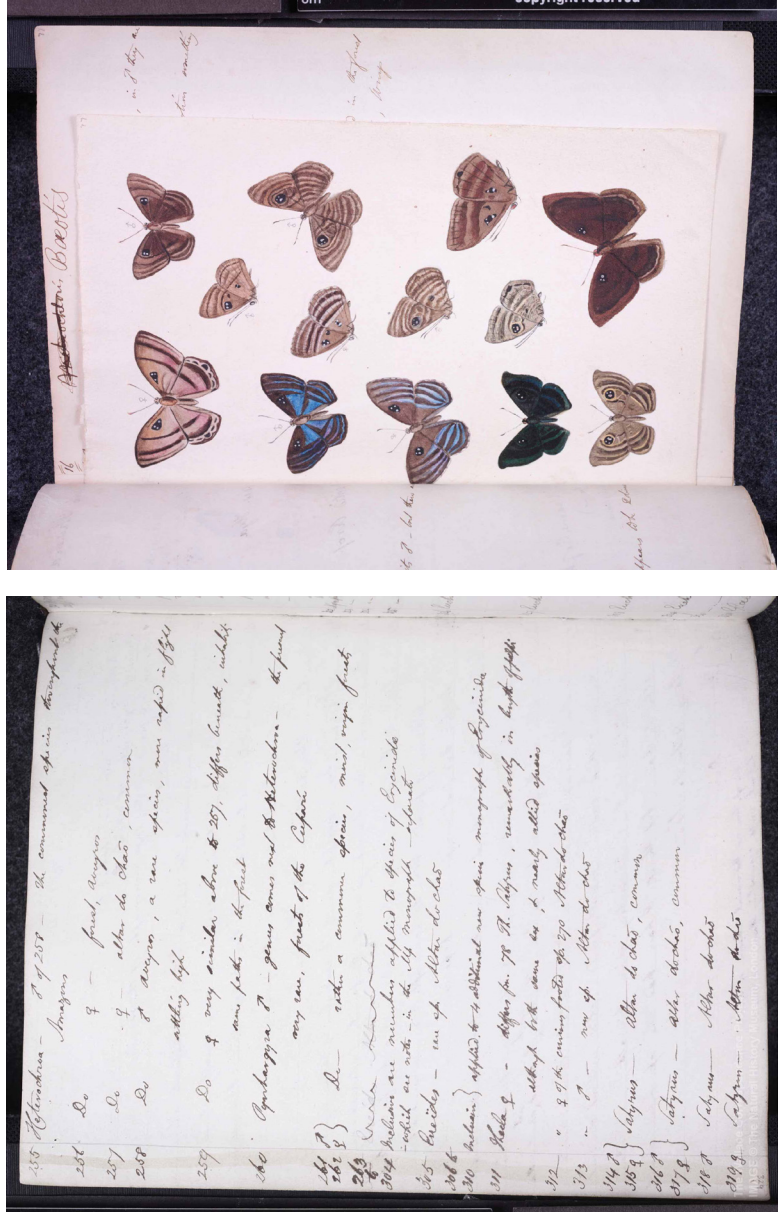 cm copyright reserved
in the forest
76
Bœotis
255. Heterochroa — ♂ of 258 — the commonest species throughout the
Amazons
256 Do ♀ — forest, aveyros
257 Do ♀ — altar do chaõ, common
258 Do ♂ aveyros, a rare species, more rapid in flight
settling high
259 Do ♀ very similar above to 257, differs beneath,
same paths in the forest
260 ♂ — genus comes next to Heterochroa — the present
very rare, forests of the Cupari
261 ♂
262 ♀ } Do — rather a commoner species, moist, virgin forests
263
to
304 inclusive are numbers applied to species of Erycinidæ
which see notes — in the MS monograph separate
305 — rare sp. Altar do chaõ
306 &
310 inclusive } applied to additional new species monograph of Erycinidæ
311 Thecla ♀ — differs fm. 78 Th. , remarkably in length of palpi
although both same sex, & nearly allied species
312 " ♀ of the curious footed sp. 270 Altar do chaõ
313 " ♂ — new sp. Altar do chaõ
314 ♂
315 ♀ } Satyrus — altar do chaõ, common
316 ♂
317 ♀ } Satyrus — altar do chaõ, common
318 ♂ Satyrus — Altar do chaõ
319 ♀ Satyrus — Altar do chaõ